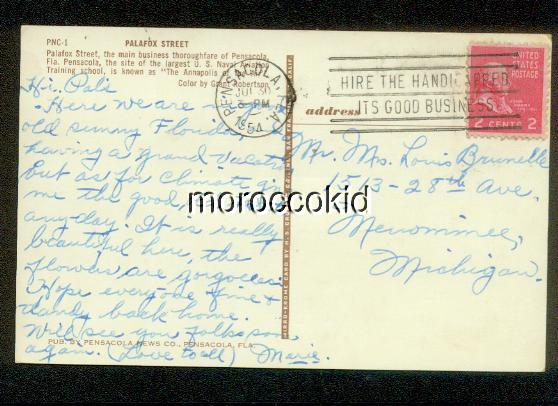 PNC-1 PALAFOX STREET
Palafox Street, the main business thoroughfare of Pensacola
Fla. Pensacola, the site of the largest U. S. Naval
Training school, is known as "The Annapolis of
Color by Grant Robertson
Hi. Pals
Here we are
old sunny Florida
having a grand vacation
but as for climate
me the good
anyday. It is really
beautiful here, the
flowers are gorgeous
Hope everyone fine +
dandy back home.
Will see you folks soon
again. (Love to all) Marie.
PUB. BY PENSACOLA NEWS CO., PENSACOLA, FLA.
PENSACOLA, FLA.
PM
1954
HIRE THE HANDICAPPED
ITS GOOD BUSINESS
UNITED STATES
POSTAGE
2 CENTS 2
address
Mr. Ms. Louis Brunelle
1513-28th Ave.
Menominee,
Michigan.
moroccokid